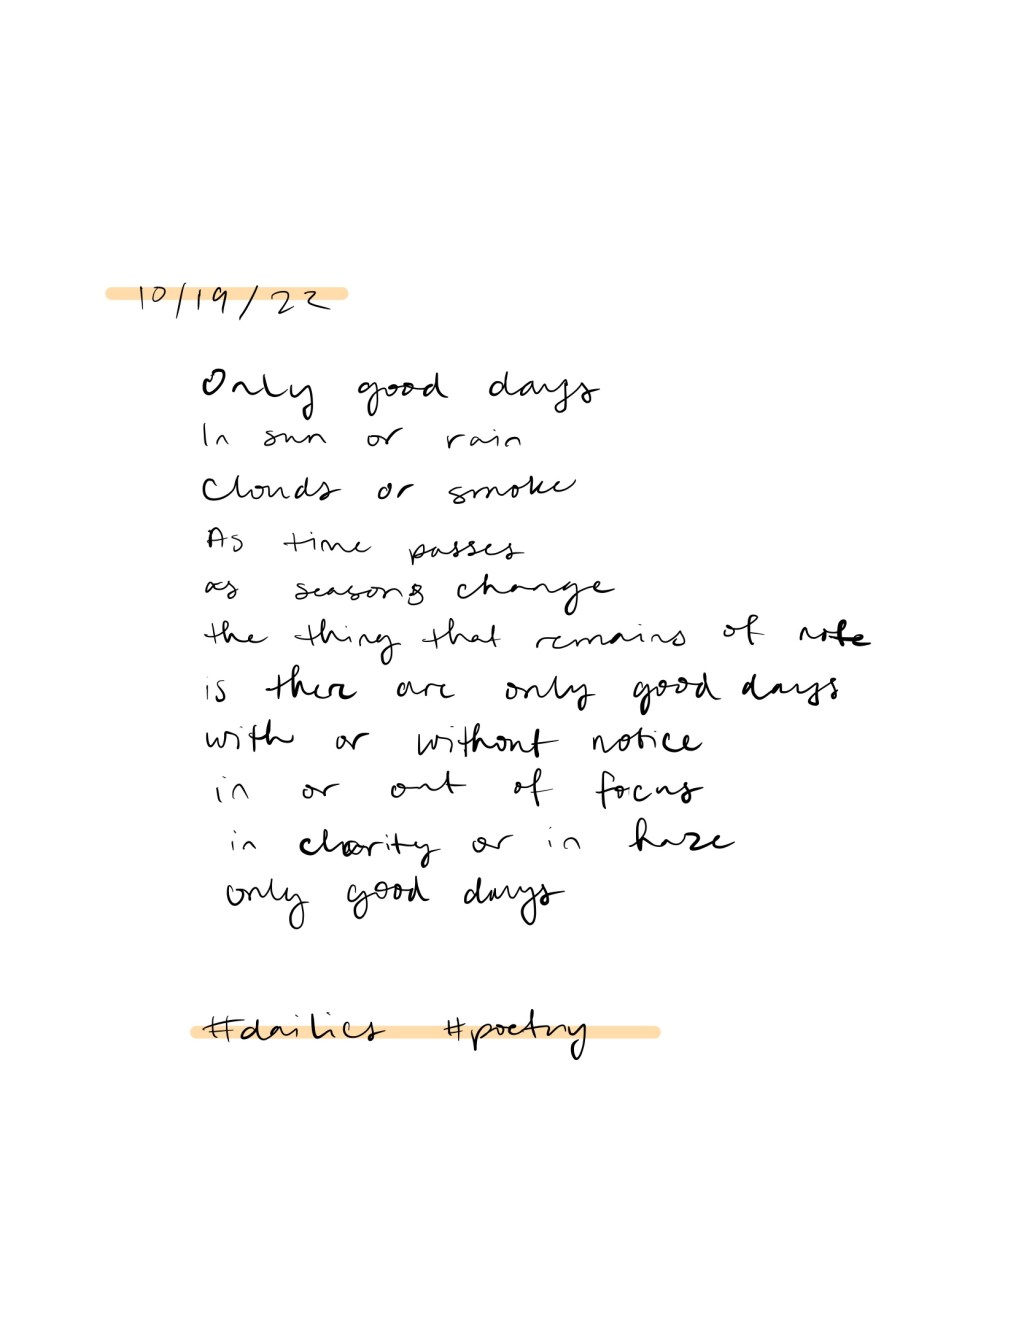 10/19/22
Only good days
In sun or rain
Clouds or smoke
As time passes
as seasons change
the thing that remains of note
is there are only good days
with or without notice
in or out of focus
in clarity or in haze
only good days
#dailies #poetry